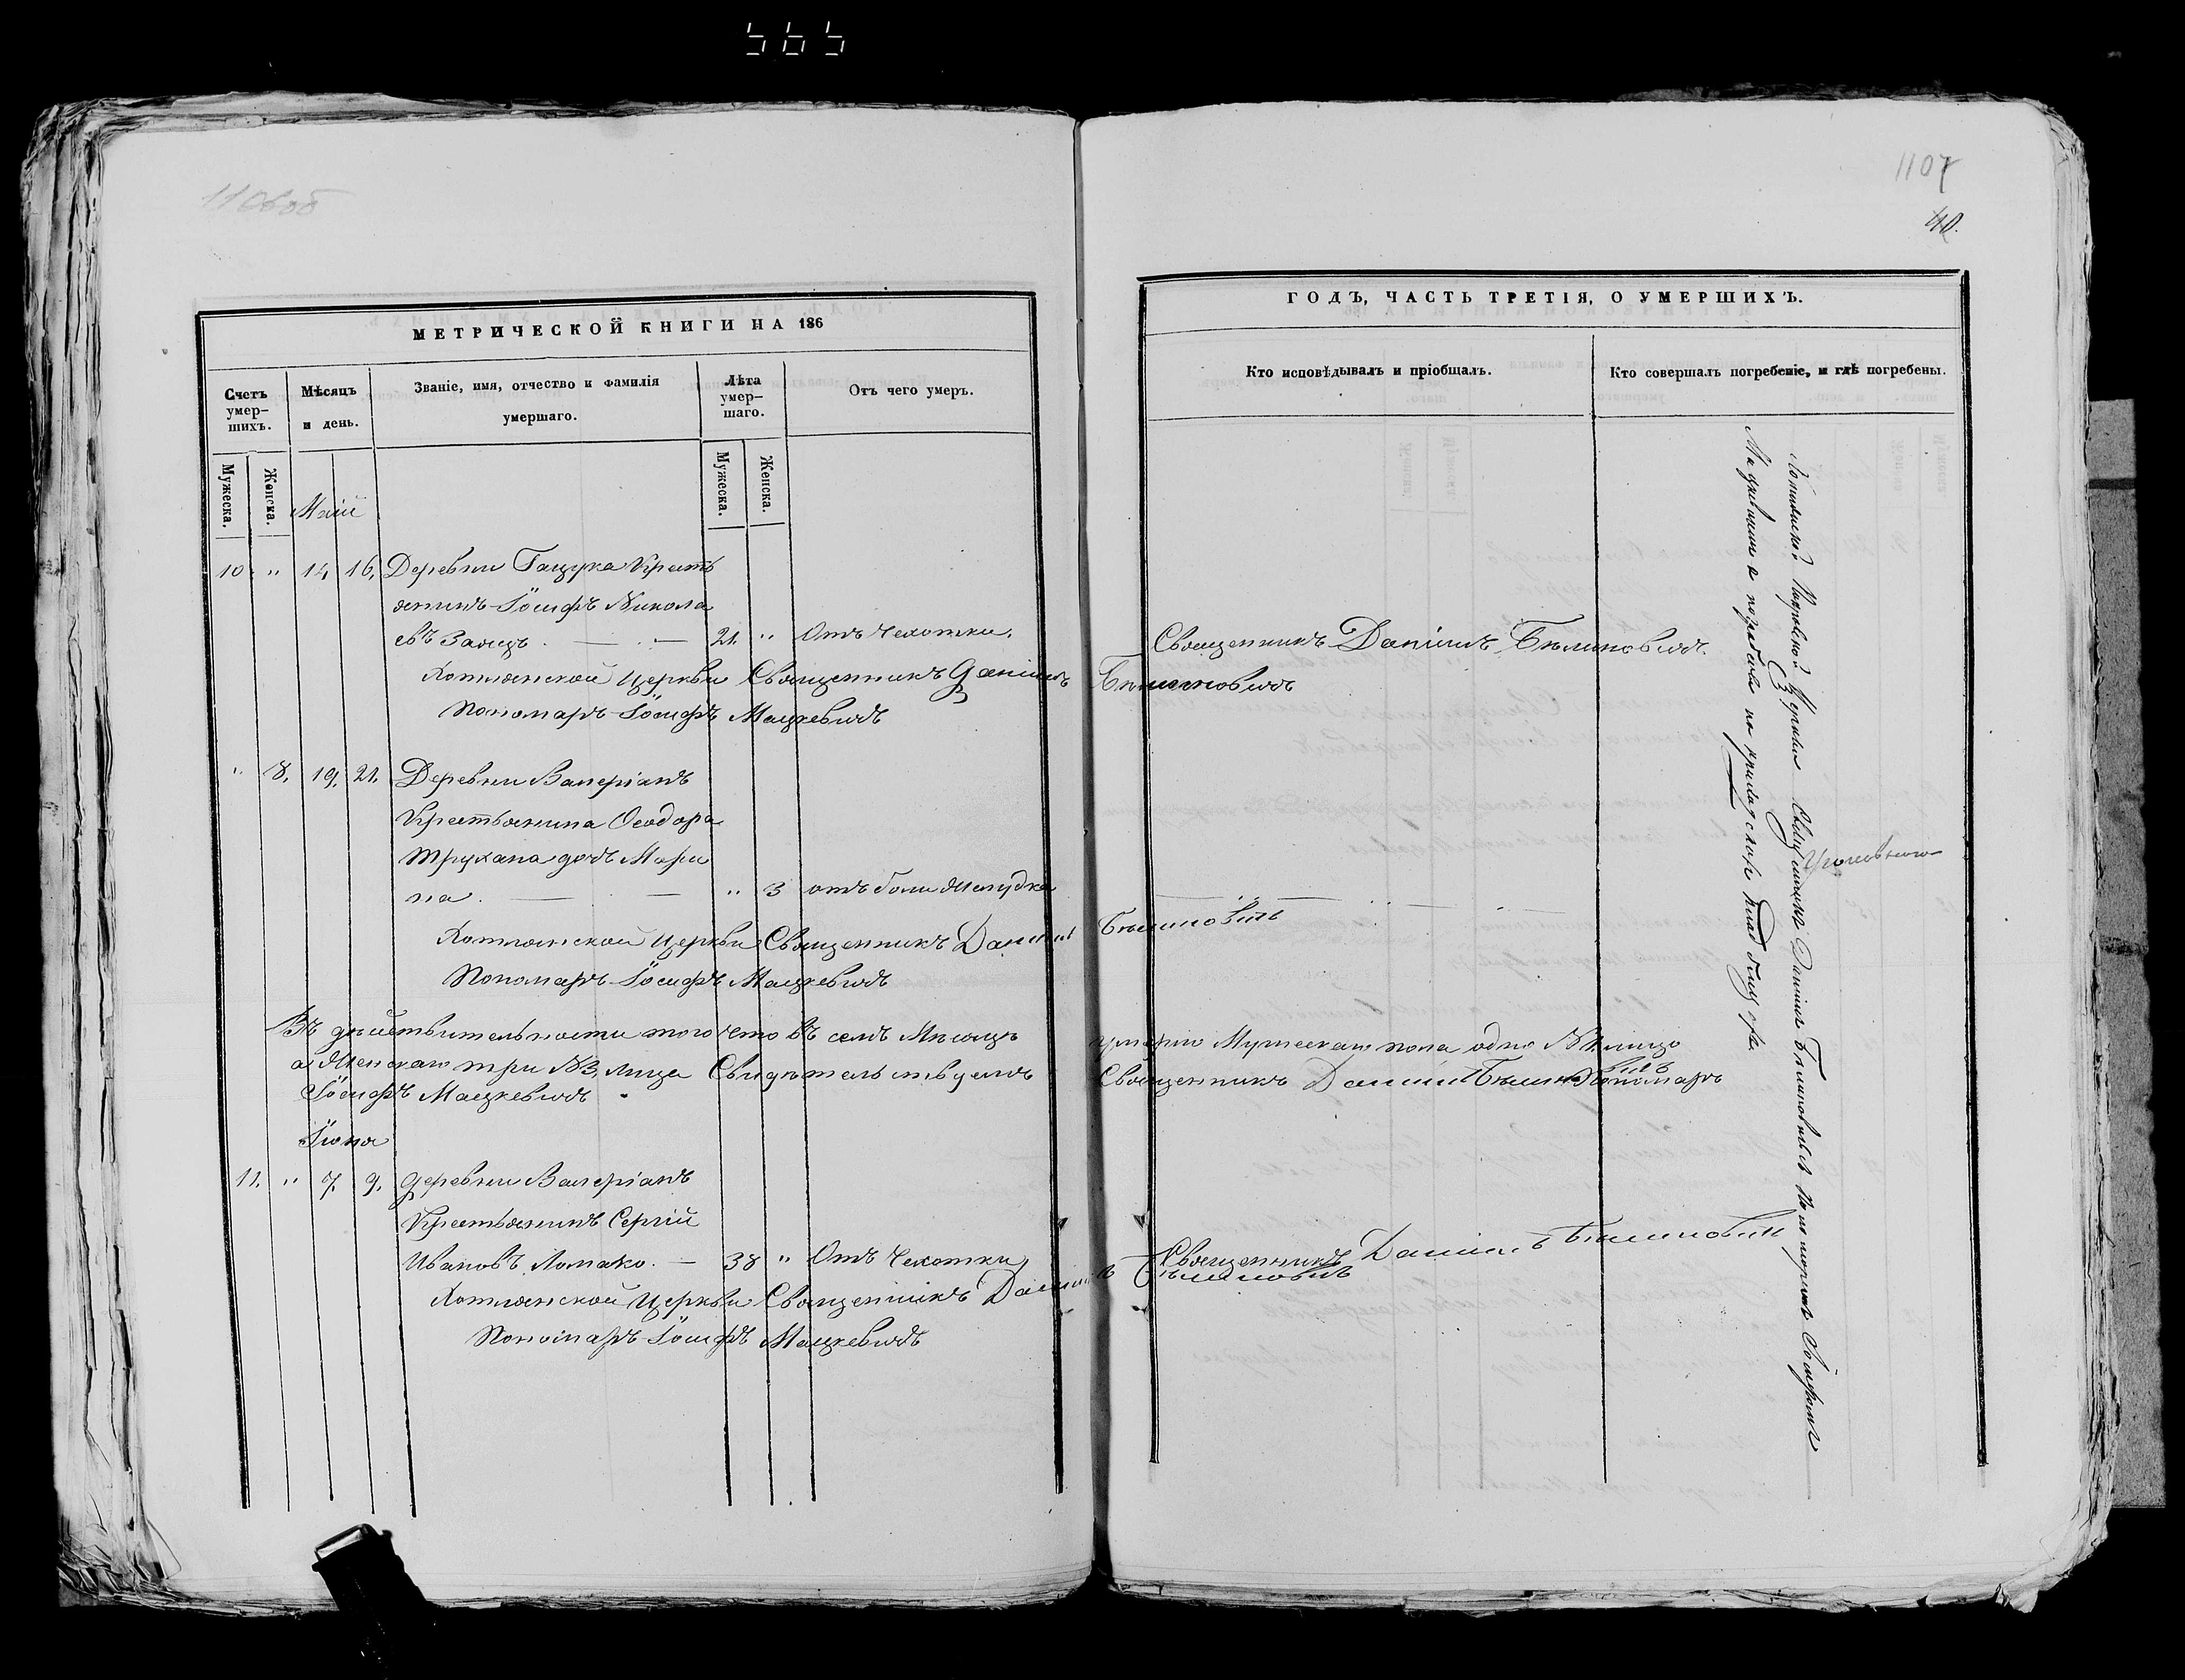 565
1106 об
1107
40.
МЕТРИЧЕСКОЙ КНИГИ НА 186
ГОДЪ, ЧАСТЬ ТРЕТІЯ, О УМЕРШИХЪ.
Счетъ умер-
шихъ.
Мѣсяцъ
и день.
Званіе, имя, отчество и фамилія
умершаго.
Лѣта
умер-
шаго.
Отъ чего умеръ.
Кто исповѣдывалъ и пріобщалъ.
Кто совершалъ погребеніе, и гдѣ погребены.
Мужеска.
Женска.
Мужеска.
Женска.
Маій
10 " 14, 16, Деревни Гацука Кресть
янинъ Іосифъ Никола
евъ Заяцъ. — 21. " Отъ Чехотки. Священникъ Даніилъ Бѣлиновичъ.
Хотлянской Церкви Священникъ Даніилъ Бѣлиновичъ
Пономарь Іосифъ Мацкевичъ
" 8. 19. 21. Деревни Валеріанъ
Крестьянина Ѳеодора
Трухана дочь Мари
на. — " 3 отъ боли желудка —
Хотлянской Церкви Священникъ Даніилъ Бѣлиновичъ
Пономарь Іосифъ Мацкевичъ
Въ дѣйствительности того что въ семъ Мѣсяцѣ умерло Мужескаго пола одно №1. лицо
а Женскаго три №3, лица Свидѣтельствуемъ Священникъ Даніилъ Бѣлиновичъ Пономарь
Іосифъ Мацкевичъ
Іюня
11. " 7. 9. деревни Валеріанъ
Крестьянинъ Сергій
Ивановъ Ломако. — 38 " Отъ Чехотки Священникъ Даніилъ Бѣлиновичъ
Хотлянской Церкви Священникъ Даніилъ Бѣлиновичъ
Пономарь Іосифъ Мацкевичъ
Хотлянской Церкви Священникъ Даніилъ Бѣлиновичъ съ пономаремъ Іосифомъ
Мацкевичемъ погребены на приходскомъ кладбищѣ